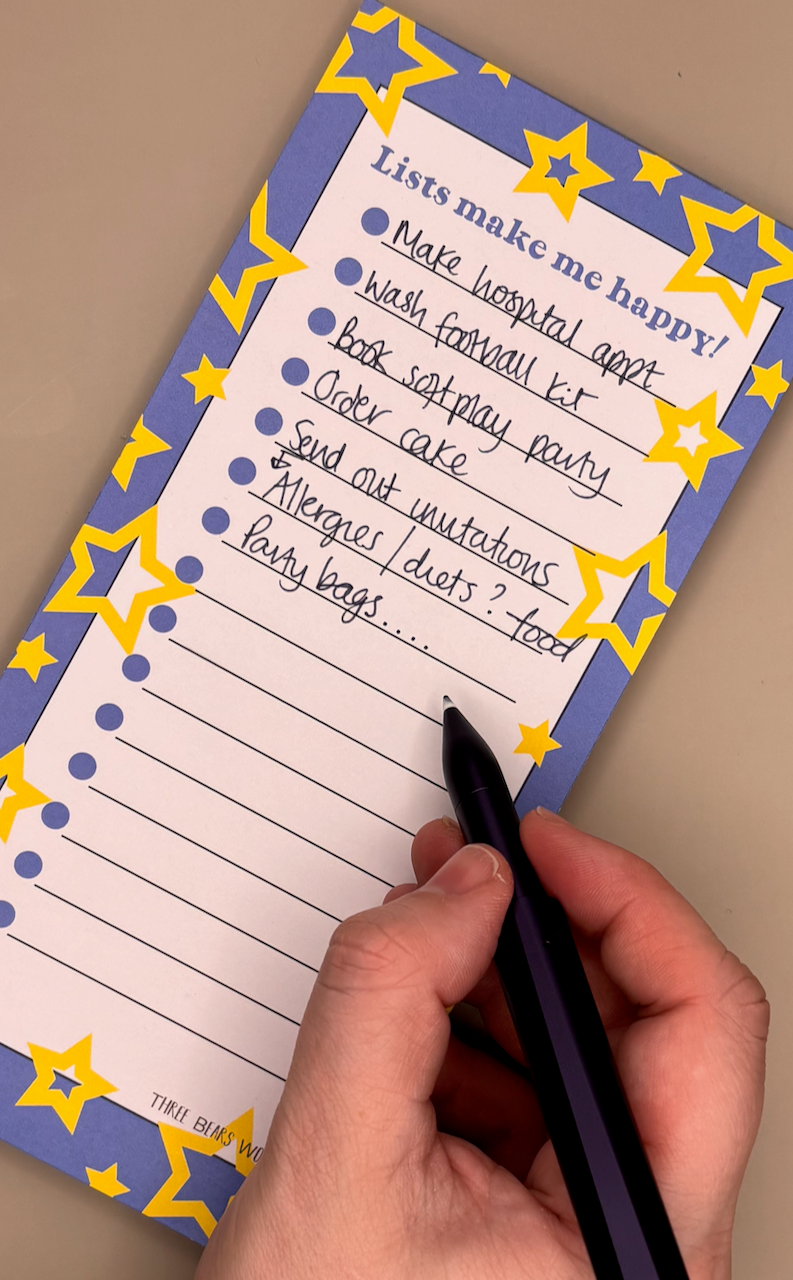 Lists make me happy!
Make hospital appt
Wash football kit
Book softplay party
Order cake
Send out invitations
↳ Allergies / diets ? - food
Party bags....
THREE BEARS WO